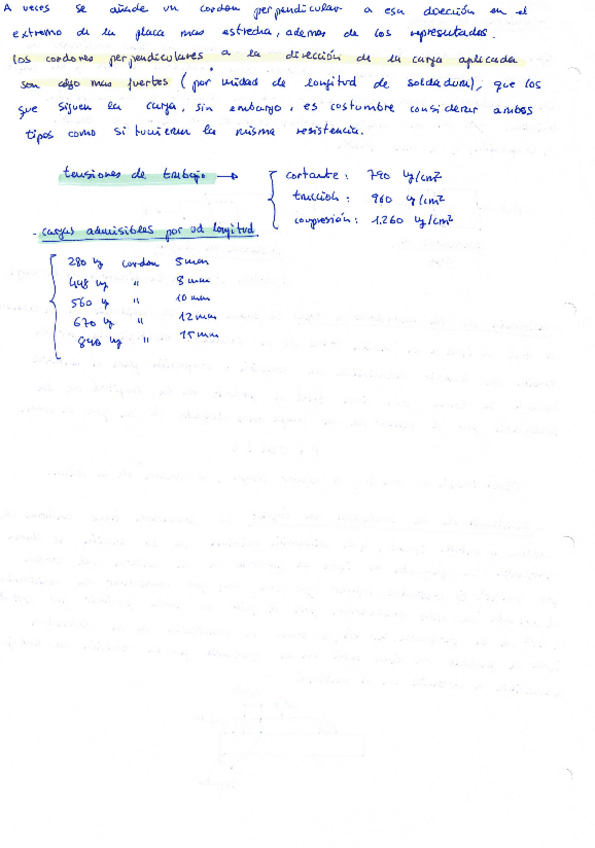 A veces se añade un cordon perpendicular a esa dirección en el
extremo de la placa mas estrecha, ademas de los representados.
Los cordones perpendiculares a la dirección de la carga aplicada
son algo mas fuertes (por unidad de longitud de soldadura), que los
que siguen la carga, sin embargo, es costumbre considerar ambos
tipos como si tuvieran la misma resistencia.
tensiones de trabajo → cortante: 790 kg/cm²
tracción: 960 kg/cm²
compresión: 1.260 kg/cm²
- cargas admisibles por ud longitud.
280 kg cordon 5 mm
448 kg " 8 mm
560 kg " 10 mm
670 kg " 12 mm
840 kg " 15 mm